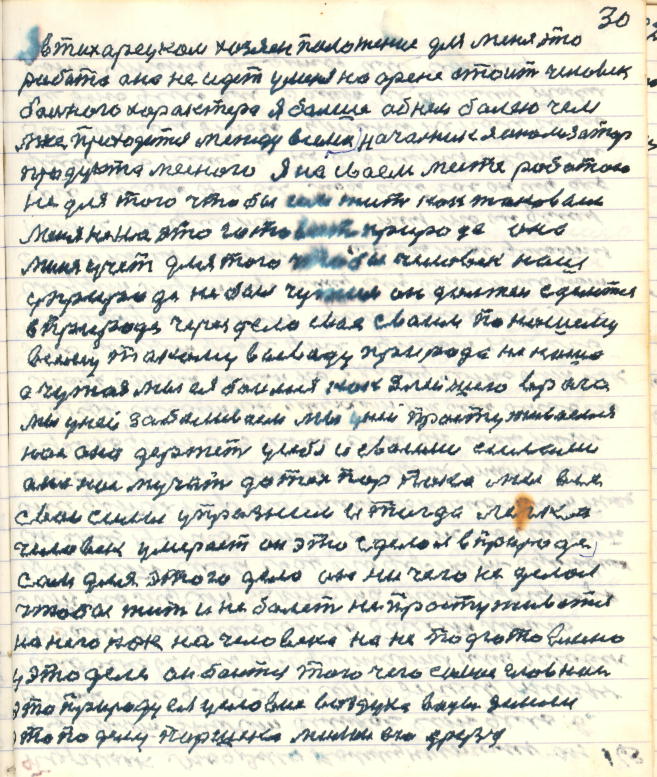 30
втихарецком хозяен положение для меня это
работа она не идет уменя на арене стоит человек
болного характера я болше об нем болею чем
мне приходется между всеми началник
продукта месного я на своем месте работаю
не для того чтобы жить как таковым
меня на это природа она
меня учет для того чтобы человек наш
сприроде не был чужим он должен сделатся
вприроде через дело свое своим по нашему
всему такому выводу природа не наша
а чужая мы ея боимся как злейшего врага
мы уней заболиваем мы уней простуживаемся
нас она держет усебя и своими силами
она нас мучит до тех пор пока мы все
свои силы и тогда легко
человек умерает он это сделал вприроде
сам для этого дело он ничего не делал
чтобы жить и не болет не простуживатся
на него как на человека не подготовлено
у это деле он боится того чего самое главное
это природу ея условие воздуха воды земли
это по делу Паршека милые его друзя